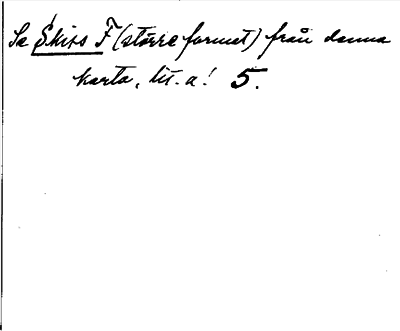 Se Skiss F (större format) från denna
karta, lit. a! 5.